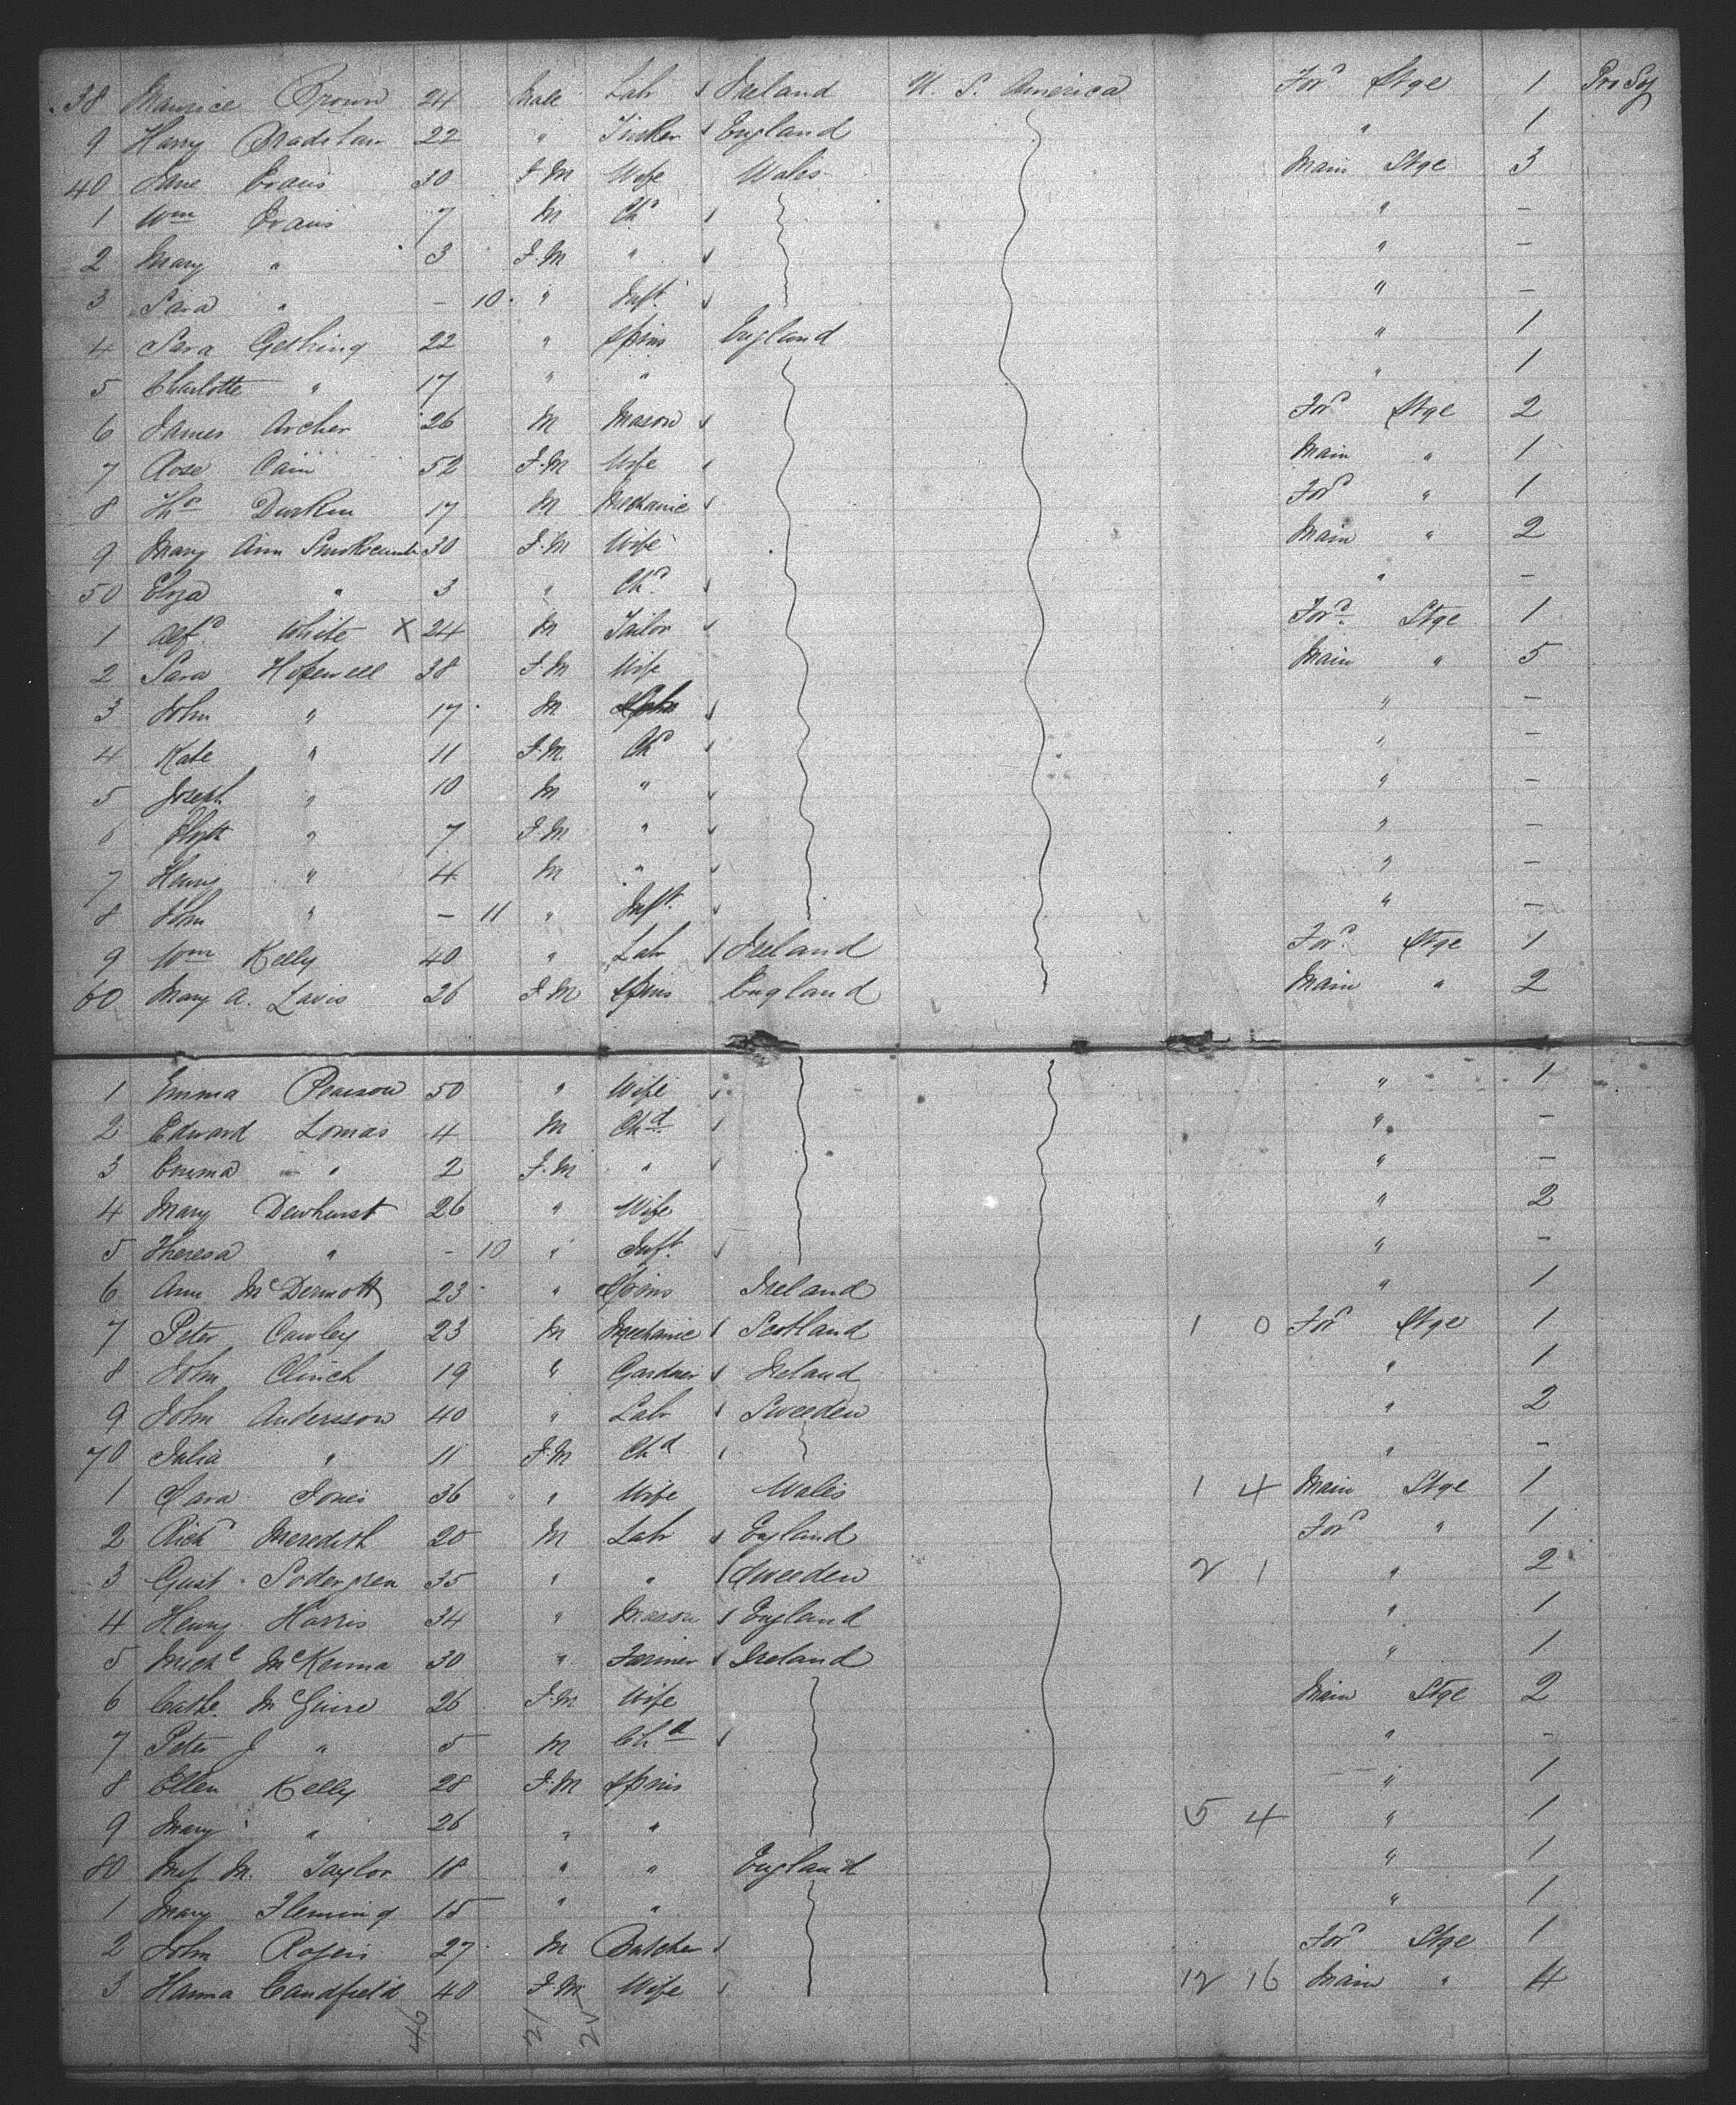 38 Maurice Brown 24 Male Labr Ireland U. S. America Ford Stge 1
9 Harry Bradshaw 22 " England " 1
40 Jane Evans 30 F.M Wife Wales Main Stge 3
1 Wm Evans 7 M Chd " —
2 Mary " 3 F.M " " —
3 Sara " — 10 " Inft " —
4 Sara Gething 22 " Spins England " 1
5 Charlotte " 17 " " " 1
6 James Archer 26 M Mason Ford Stge 2
7 Rose Cain 52 F.M Wife Main " 1
8 Ths Durkin 17 M Mechanic Ford " 1
9 Mary Ann 30 F.M Wife Main " 2
50 Eliza " 3 " Chd " —
1 Alfd White X 24 M Tailor Ford Stge 1
2 Sara Hopewell 38 F.M Wife Main " 5
3 John " 17 M " —
4 Kate " 11 F.M. Chd " —
5 Joseph " 10 M " " —
6 Elizth " 7 F.M " " —
7 Henry " 4 M " " —
8 John " — 11 " Inft " —
9 Wm Kelly 40 " Labr Ireland Ford Stge 1
60 Mary A. Lavis 26 F.M Spins England Main " 2
1 Emma Pearson 50 " Wife " 1
2 Edward Lomas 4 M Chd " —
3 Emma " 2 F.M " " —
4 Mary Dewhurst 26 " Wife " 2
5 Theresa " — 10 " Inft " —
6 Ann McDermott 23 " Spins Ireland " 1
7 Peter Cawley 23 M Mechanic Scotland 1 0 Ford Stge 1
8 John Clinch 19 " Gardner Ireland " 1
9 John Andersson 40 " Labr Sweeden " 2
70 Julia " 11 F.M Chd " —
1 Sara Jones 36 " Wife Wales 1 4 Main Stge 1
2 Richd Meredith 20 M Labr England Ford " 1
3 Gust. Sodergren 35 " " Sweeden 2 1 " 2
4 Henry Harris 34 " Mason England " 1
5 Michl McKenna 30 " Farmer Ireland " 1
6 Cathe. McGuire 26 F.M Wife Main Stge 2
7 Peter J " 5 M Chd " —
8 Ellen Kelly 28 F.M Spins " 1
9 Mary " 26 " " 5 4 " 1
80 M. Taylor 18 " " England " 1
1 Mary Fleming 15 " " " 1
2 John Rogers 27 M Butcher Ford Stge 1
3 Hanna Candfield 40 F.M. Wife 12 16 Main " 4
46 21 25